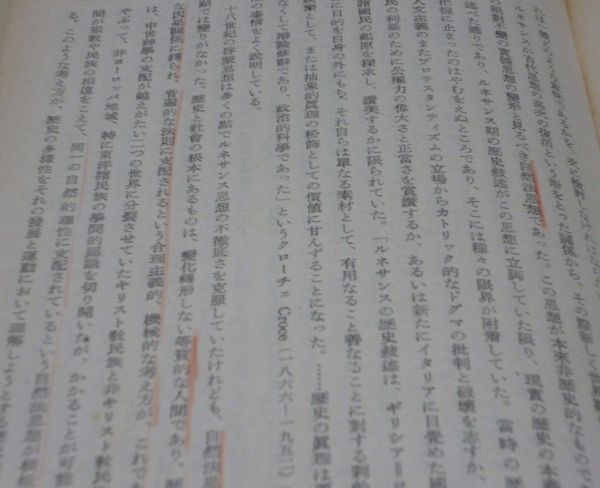 ルネサンスが古代思想の最学の復活という形をとった關係から、その際新しく
の絶對主義の實踐思想の變形と見るべき自然法思想であった。この思想が本來非歷史的なもので
述った通りであり、ルネサンス期の歷史敍述がこの思想に立脚していた限り、現實の歷史の本
把握に止まったのはやむをえぬところであり、そこには種々の限界が附着していた。當時の歷
人文主義のまたプロテスタンティズムの立場からカトリック的なドグマの批判と破壞を志すか、
民の利益のために公權力の偉大さと正當さを賞讃するか、あるいは新たにイタリアに目覺めた國
諸國民の起原を探求し、讃美するかに限られていた。「ルネサンスの歷史敍述は、ギリシアーロ
に目的を自身の外にもち、それ自らは單なる素材として、有用なること善なることに對する刺
樂として、または抽象的眞理の粉飾としての價値に甘んずることになった。……歷史の眞理は
なくして辯論修辭であり、政治的科學であった」というクローチェ Croce（一八六六―一九五二）
の事情をよく說明している。
十八世紀の啓蒙思想は多くの點でルネサンス思想の不徹底さを克服していたけれども、自然法思
點では變りがなかった。歷史と社會の根本にあるものは、變化轉形しない等質的な人間であり、
な因果關係に縛られ、普遍的な法則に支配されるという合理主義的、機械的な考え方が、これで
は、中世神學の支配が越えがたい二つの世界に分裂させていたキリスト敎民族と非キリスト敎民
やぶって、非ヨーロッパ地域、特に東洋諸民族の學問的認識を切り開いたが、かかることが可能
間が宗敎や民族の相違をこえて、同一の自然的理性に支配されているという自然法思想が
る。このような考え方が、歷史の多樣性をそれの發展と運動において理解しようとする